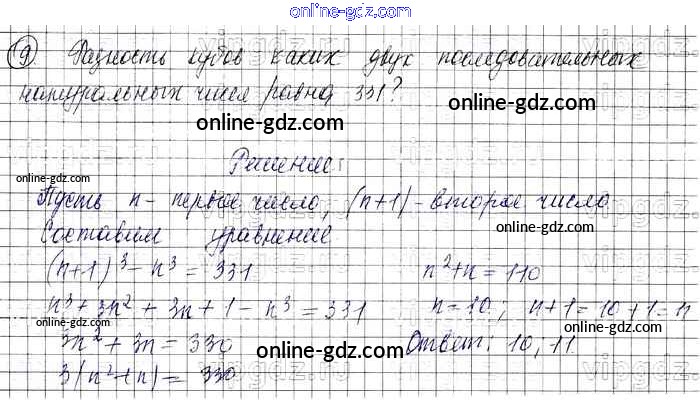 online-gdz.com
9 Разность кубов каких двух последовательных
натуральных чисел равна 331?
online-gdz.com
online-gdz.com
Решение:
online-gdz.com
Пусть n - первое число, (n+1) - второе число
online-gdz.com
Составим уравнение
(n+1)³ - n³ = 331
n³ + 3n² + 3n + 1 - n³ = 331
online-gdz.com
3n² + 3n = 330
3(n² + n) = 330
n² + n = 110
n = 10; n+1 = 10+1 = 11
online-gdz.com
Ответ: 10; 11
online-gdz.com
online-gdz.com